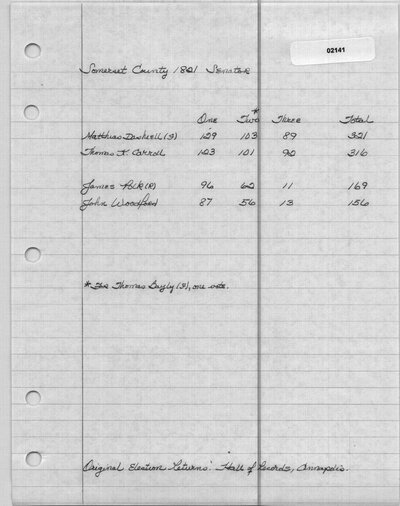 02141
Somerset County 1821 Senator
*
One Two Three Total
Matthias Dashiell (F) 129 103 89 321
Thomas K. Carroll 123 101 92 316
James Polk (R) 96 62 11 169
John 87 56 13 156
* Thomas Bayly (F), one vote.
Original Election Returns: Hall of Records, Annapolis.